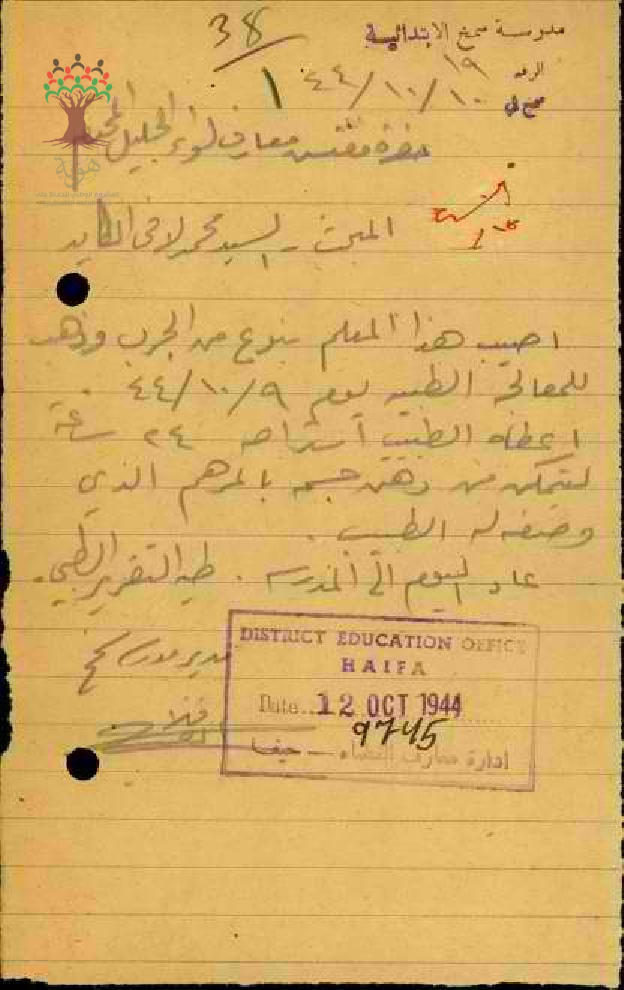 38
مدرسة سمخ الابتدائية
الرقم ١٩
سمخ في ١٠/١٠/٤٤
١
حضرة مفتش معارف لواء الجليل المحترم
المبحث - السيد محمد لافي
اصيب هذا المعلم بنوع من الجرب وذهب
للمعالجة الطبيه يوم ٩/١٠/٤٤ .
اعطاه الطبيب استراحه ٢٤ ساعة
ليتمكن من دهن جسمه بالمرهم الذي
وصفه له الطبيب .
عاد اليوم الى المدرسه . طيه التقرير الطبي .
مدير مدرسة سمخ
DISTRICT EDUCATION OFFICE
HAIFA
Date 12 OCT 1944
9745
ادارة معارف اللواء — حيفا
هوية